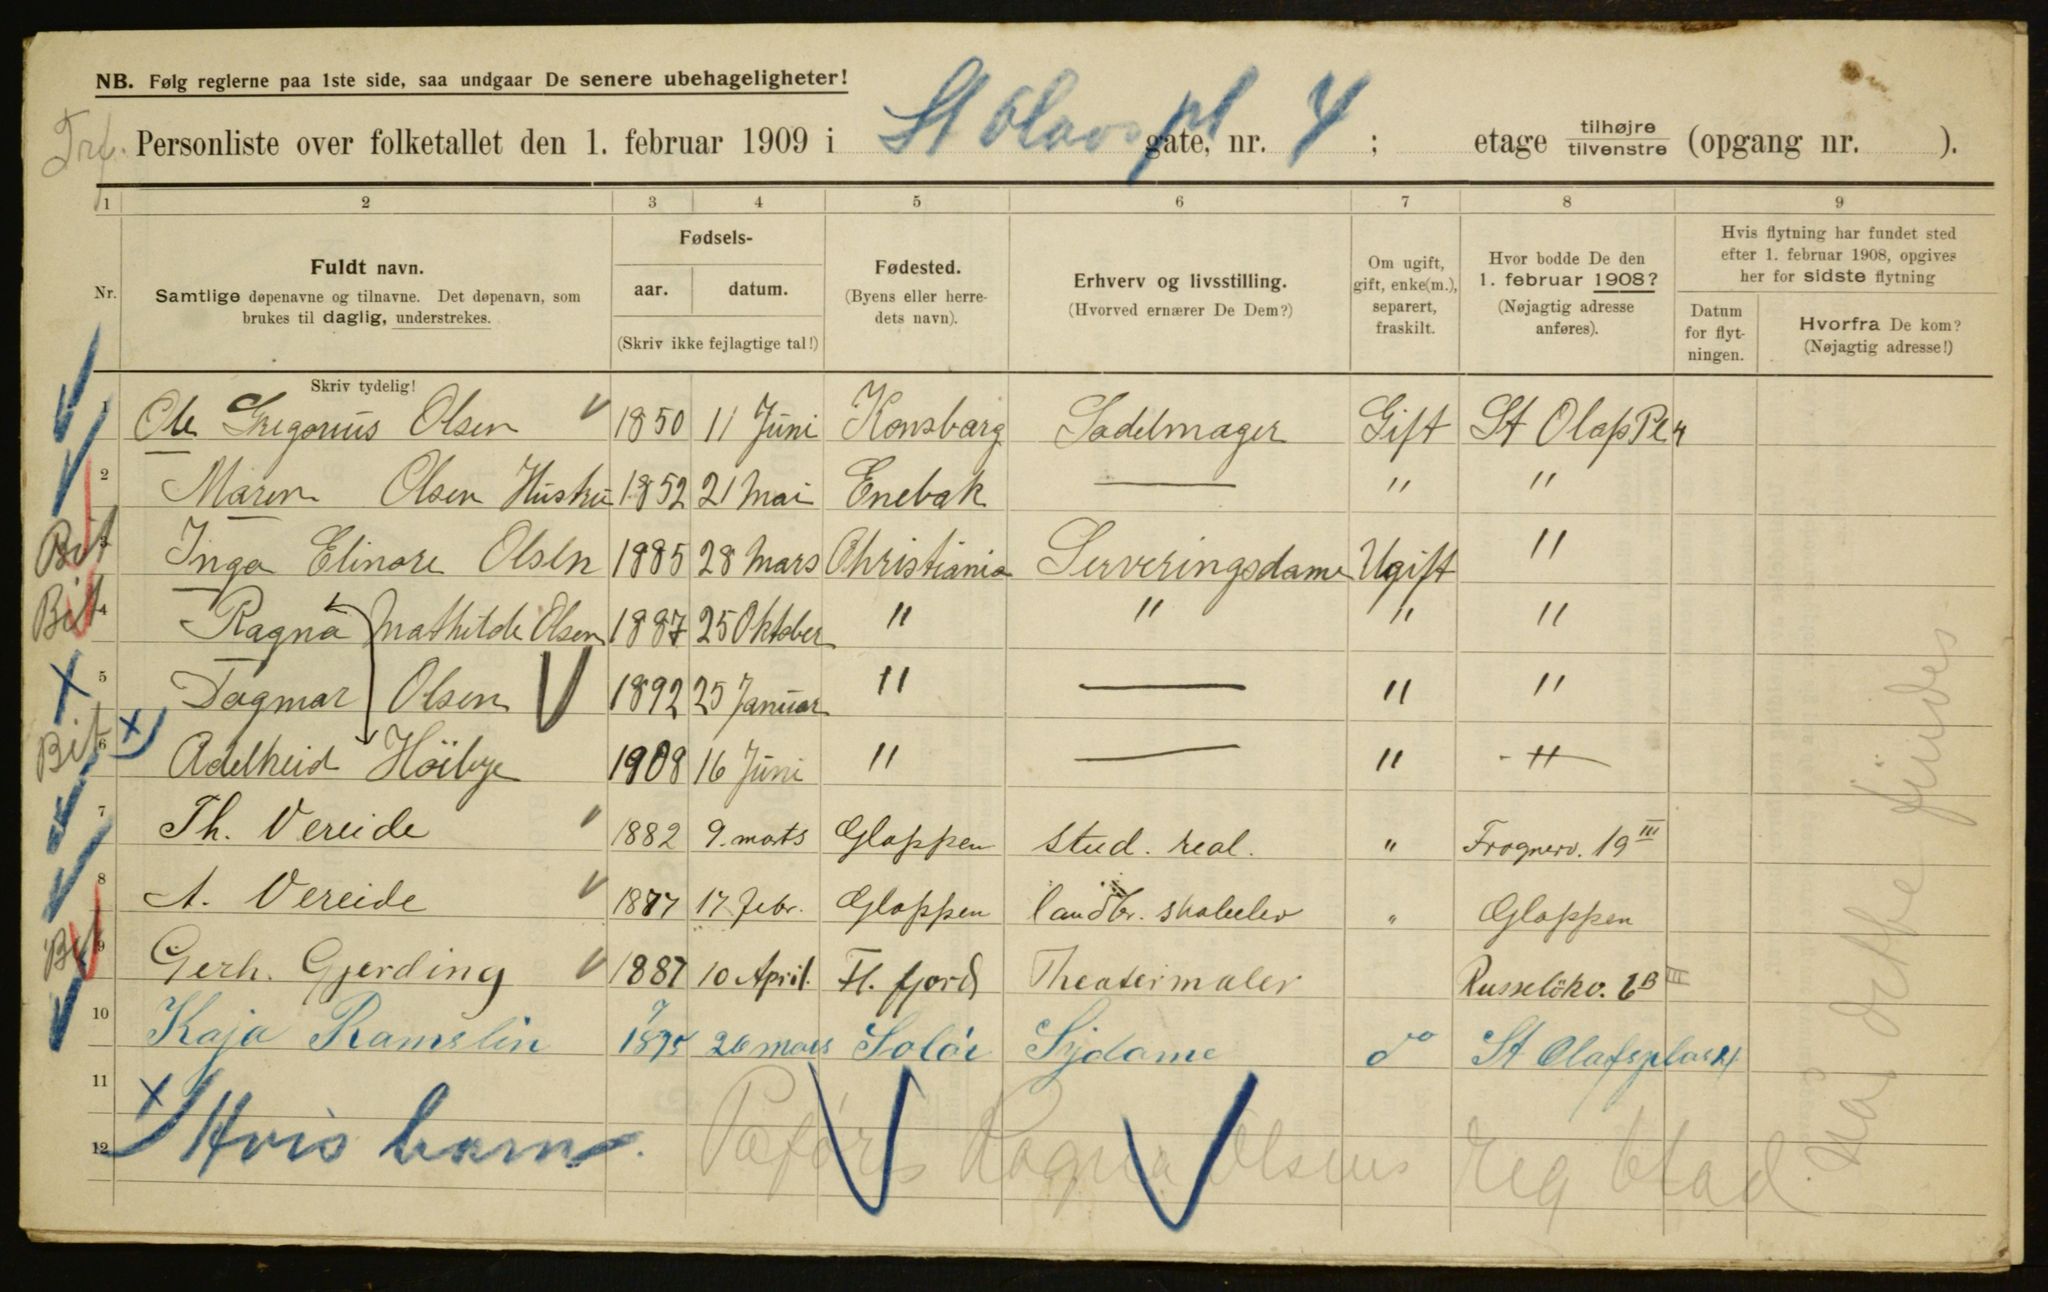 NB. Følg reglerne paa 1ste side, saa undgaar De senere ubehageligheter!
Trf. Personliste over folketallet den 1. februar 1909 i St Olavs pl gate, nr. 4 ; etage tilhøjre tilvenstre (opgang nr. ).
1 2 3 4 5 6 7 8 9
Nr.
Fuldt navn.
Samtlige døpenavne og tilnavne. Det døpenavn, som
brukes til daglig, understrekes.
Skriv tydelig!
Fødsels-
aar. datum.
(Skriv ikke fejlagtige tal!)
Fødested.
(Byens eller herre-
dets navn).
Erhverv og livsstilling.
(Hvorved ernærer De Dem?)
Om ugift,
gift, enke(m.),
separert,
fraskilt.
Hvor bodde De den
1. februar 1908?
(Nøjagtig adresse
anføres).
Hvis flytning har fundet sted
efter 1. februar 1908, opgives
her for sidste flytning
Datum
for flyt-
ningen.
Hvorfra De kom?
(Nøjagtig adresse!)
1 Ole Gregorius Olsen 1850 11 Juni Konsbarg Sadelmager Gift St Olafs Pl 4
2 Maren Olsen Hustru 1852 21 Mai Enebak — " "
Bit 3 Inga Elinore Olsen 1885 28 Mars Christiania Serveringsdame Ugift "
Bit 4 Ragna Mathilde Olsen 1887 25 Oktober " " " "
5 Dagmar Olsen 1892 25 Januar " — " "
Bit 6 Adelheid Höibye 1908 16 Juni " — " - " -
7 Th. Vereide 1882 9. mars Gloppen stud. real. " Frognerv. 19 III
8 A. Vereide 1877 17 febr. Gloppen landbr. skoleelev " Gloppen
Bit 9 Gerh. Gjerding 1887 10 April. Fl. fjord Theatermaler Russelökv. 6 B III
10 Kaja Ramslin 1875 26 mars Solör Sydame do St Olafsplas 4
11
12 x Hvis barn. Paføres Ragna Olsens reg blad.